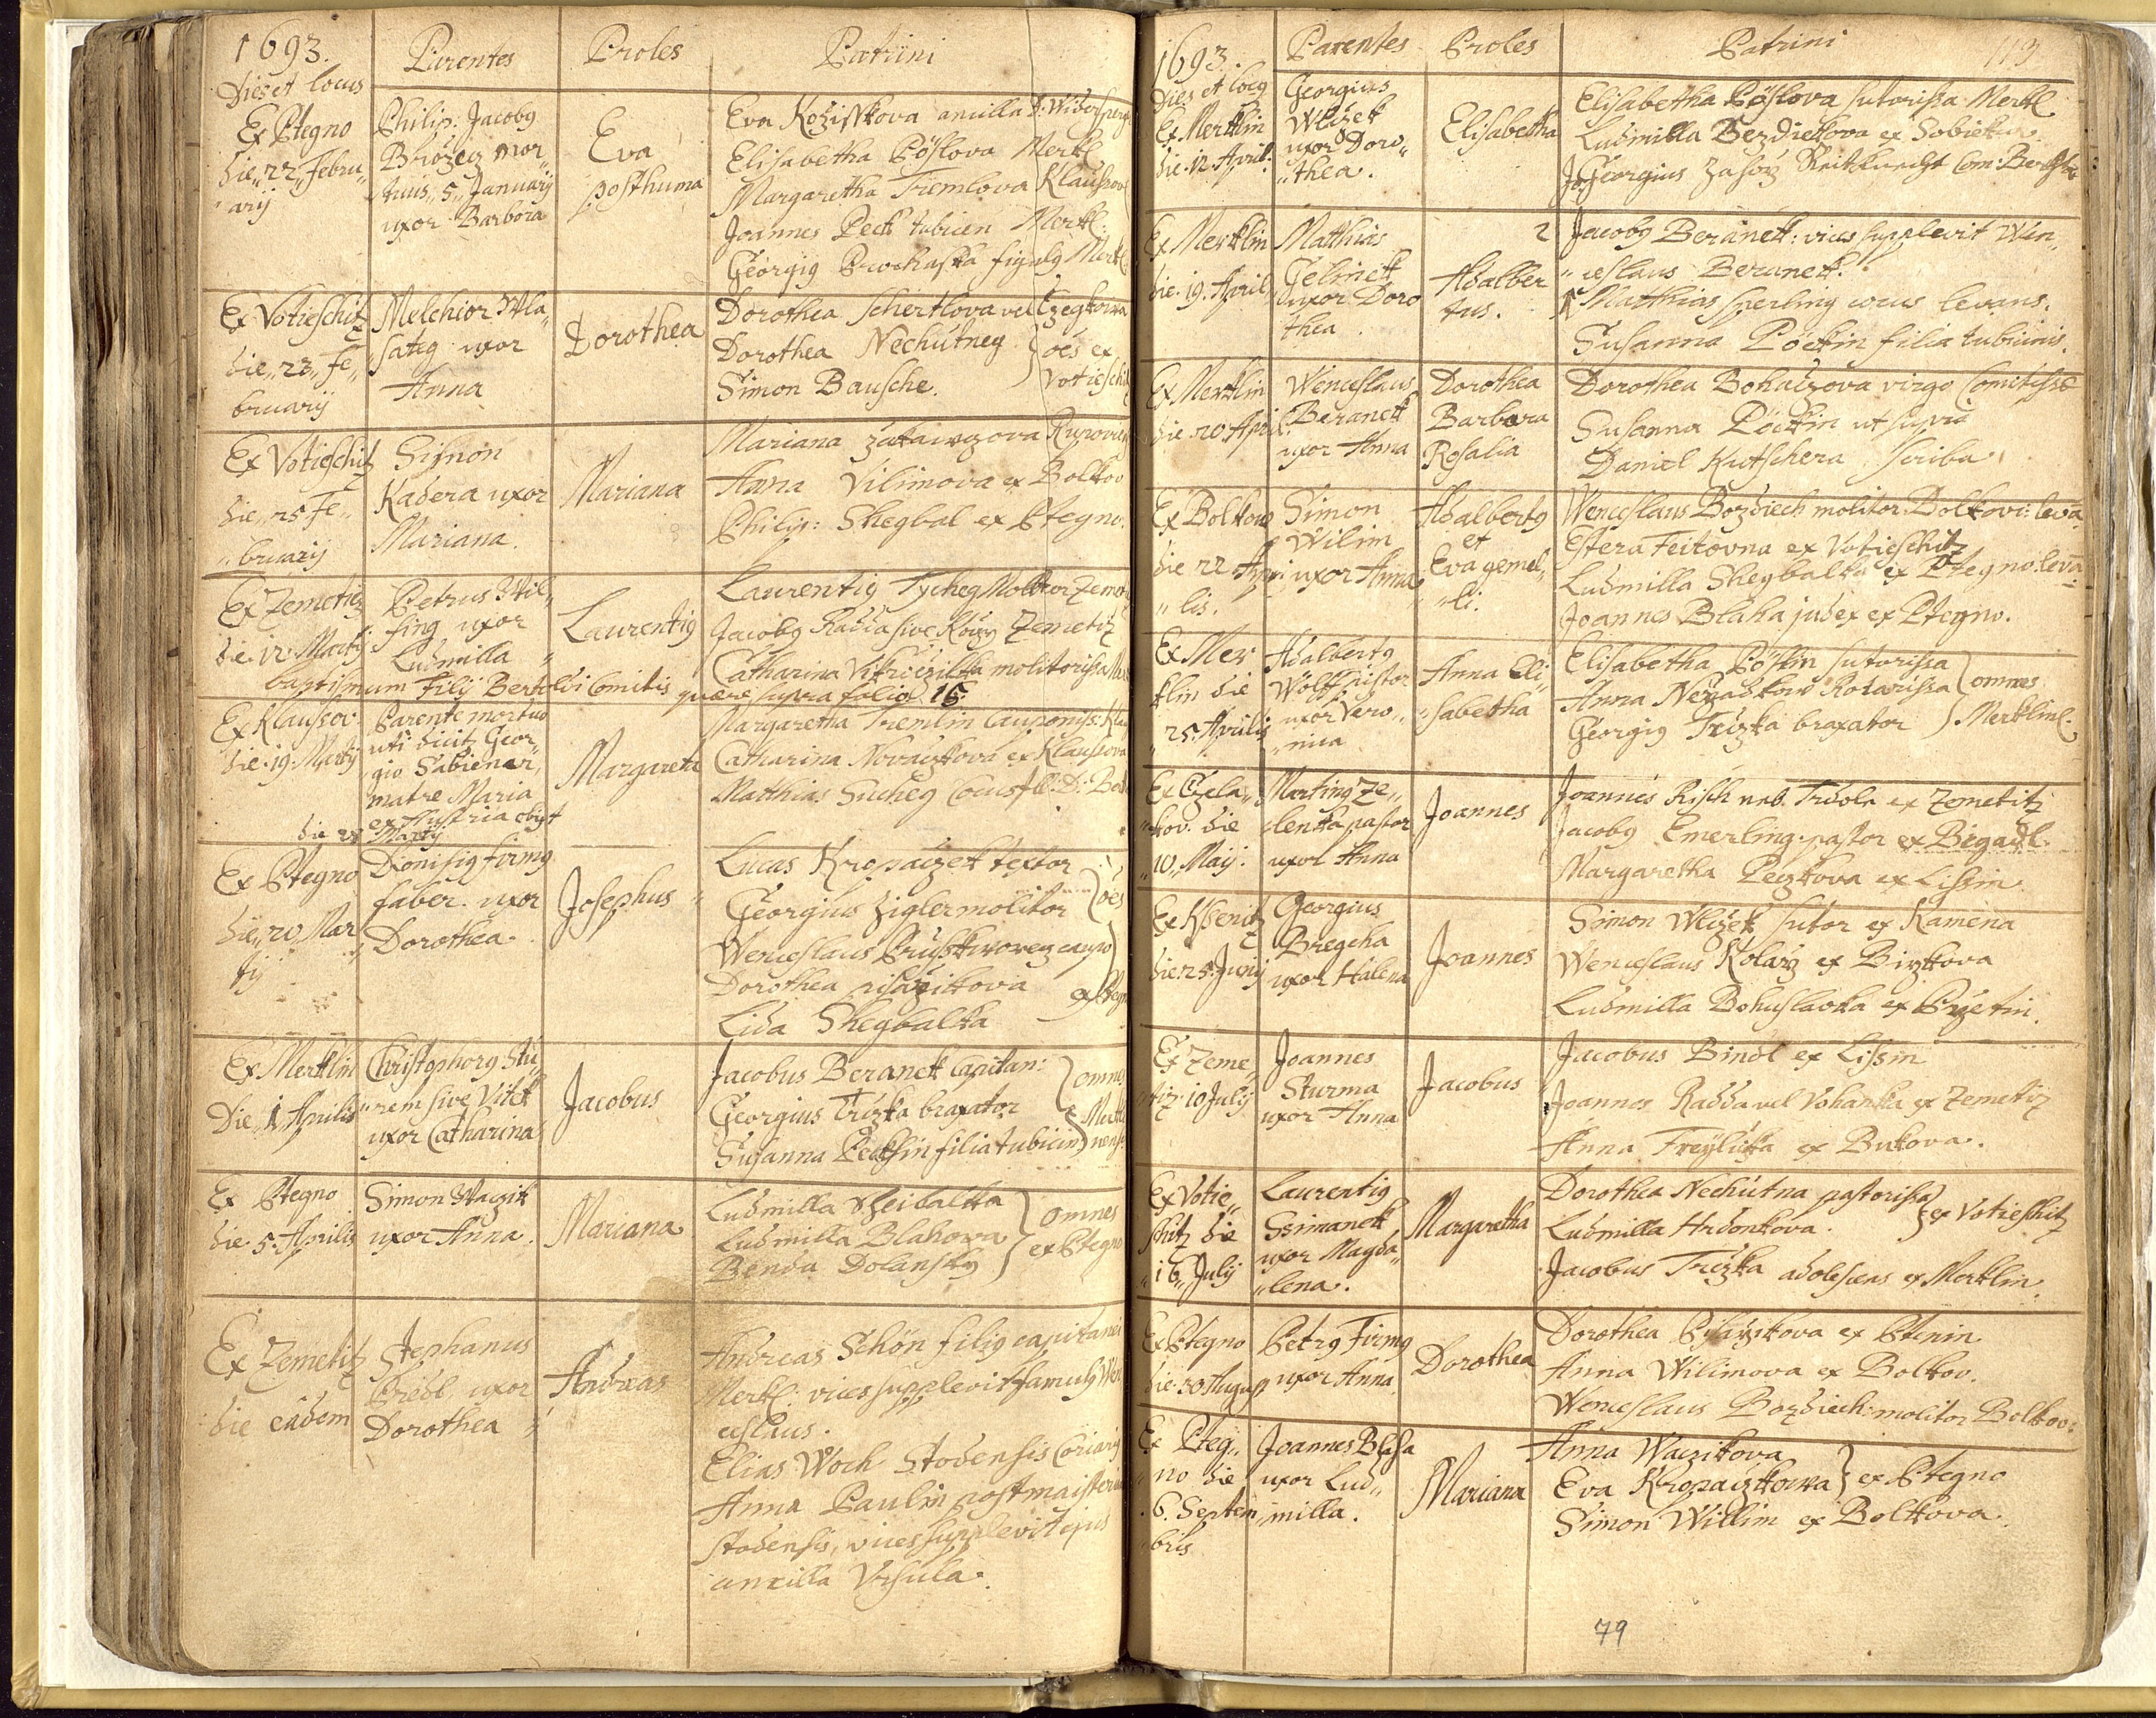 1693.
Dies et locus
Parentes
Proles
Patrini
Ex Ptegno
die „22„ Febru„
„arij
Philip: Jacobg
mor„
tuus„ 5„ Januarij
uxor Barbora
Eva
posthuma
Eva Kozisskova ancilla D:
Elisabetha Pöslova Merkl
Margaretha Tremlova Klaussov
Joannes Peck tubicen Merkl:
Georgig Prochaska figulg Merkl
Ex Votieschitz
die„ 23„ Fe„
bruarij
Melchior Wla„
sateg uxor
Anna
Dorothea
Dorothea Schertlova vel
Dorothea Nechutneg } oēs ex
Simon Bausche. Votieschitz
Ex Votieschitz
die„ 25 Fe„
„bruarij
Simon
Kadera uxor
Mariana.
Mariana
Mariana
Anna Vilimova ex Bolkov
Philip: Shegbal ex Ptegno.
Ex Zemetitz
die. 12. Martij
Petrus Wil„
fing uxor
Ludmilla „
Laurentig
Laurentig Tycheg Zemet
Jacobg Radda sive Zemetitz
Catharina molitorissa
baptismum Filij Bertoldi Comitis quaere supra folio 16.
Ex Klaussov
die. 19. Martij
Parente mortuo
uti dicit Geor„
gio
matre Maria
ex Austria obijt
die 21 Martij
Margareta
Margaretha Tremlin Cauponiss: Klau
Catharina Novaczkova ex Klaussova
Matthias Sucheg Cocus Ill: D:
Ex Ptegno
die„ 20„ Mar
tij
Dionisig Firmg
faber. uxor
Dorothea.
Josephus „
Lucas Kropaczek textor } oēs
Georgius Ziglermolitor
Wenceslaus caupo
Dorothea ex Ptegn
Lida Shegbalka
Ex Merklin
Die„ 1„ Aprilis
Christophorg Stu„
„rem sive Vitek
uxor Catharina
Jacobus
Jacobus Beranek Capitan: } omnes
Georgius Trizka braxator Merkli
Susanna Peckin filia tubicin nens.
Ex Ptegno
die. 5. Aprilis
Simon Waczik
uxor Anna.
Mariana
Ludmilla } omnes
Ludmilla Blahova ex Ptegno
Benda Dolansky
Ex Zemetitz
die eadem
Stephanus
Priebl uxor
Dorothea „
Andreas
Andreas Schön filig capitanei
Merkl: vices supplevit famulg Wen
ceslaus.
Elias Woch Stodensis Coriarig
Anna Paulin postmaisterin
Stodensis, vices supplevit ejus
ancilla Vrsula.
1693.
Dies et locg
Parentes
Proles
Patrini
113
Ex Merklin
die. 12. April:
Georgius
Wlczek
uxor Doro„
„thea.
Elisabetha
Elisabetha Pöslova sutorissa Merkl
Ludmilla Bezdiekova ex Sobiekur
Georgius Reitknecht Com: Bertho
Ex Merklin
die. 19. April.
Matthias
Gelinek
uxor Doro
thea.
Adalber
tus.
2 Jacobg Beranek: vices supplevit Wen„
„ceslaus Beranek.
1 Matthias Sperling cocus levans.
Susanna Pöckin filia tubicinis.
Ex Merklin
die 20 April.
Wenceslaus
Beranek
uxor Anna
Dorothea
Barbara
Rosalia
Dorothea Bohaczova virgo Comitissae
Susanna Pöckin ut supra
Daniel Kutschera scriba.
Ex Bolkow
die 22 Apri
„lis.
Simon
Wilim
uxor Anna
Adalbertg
et
Eva gemel„
„li.
Wenceslaus Bozdiech molitor Bolkovi: leva
Estera Feitovna ex Votieschitz
Ludmilla Shegbalka ex Ptegno. leva
Joannes Blaha judex ex Ptegno.
Ex Mer
klin die
„25. Aprilis
Adalbertg
uxor Vero„
„nica
Anna Eli„
„sabetha
Elisabetha Pöslin sutorissa
Anna Rotarissa } omnes
Georgig Trizka braxator } Merklinl.
Ex Czela„
„kov. die
„10„ Maij.
Marting Ze„
„lenka pastor
uxor Anna
Joannes
Joannes Risch Trdola ex Zemetitz
Jacobg Emerling. pastor ex Bigadl.
Margaretha Peczkova ex Lissin.
Ex Kssenitz
die. 25. Junij
Georgius
Bregcha
uxor Halena
Joannes
Simon Wlczek sutor ex Kamena
Wenceslaus Kolarz ex Birzkova
Ludmilla Bohuslavka ex Przetin.
Ex Zeme„
titz. 10 Julij
Joannes
Sturma
uxor Anna
Jacobus
Jacobus Bindl ex Lissin
Joannes Radda vel Vohanka ex Zemetitz
Anna Freylichka ex Bukova.
Ex Votie„
schitz die
„16„ Julij
Laurentig
Ssimanek
uxor Magda„
„lena.
Margaretha
Dorothea Nechutna pastorissa
Ludmilla Hrdonkova. } ex Votieschitz
Jacobus Trizka adolescens ex Merklin.
Ex Ptegno
die. 30 August
Petrg Firmg
uxor Anna
Dorothea
Dorothea ex Ptenin
Anna Wilimova ex Bolkov.
Wenceslaus Bozdiech: molitor Bolkov:
Ex Pteg„
„no die
.6. Septem
„bris
Joannes Blaha
uxor Lud„
„milla.
Mariana
Anna Waczikova
Eva Kropaczkowa } ex Ptegno
Simon Willim ex Bolkova.
79